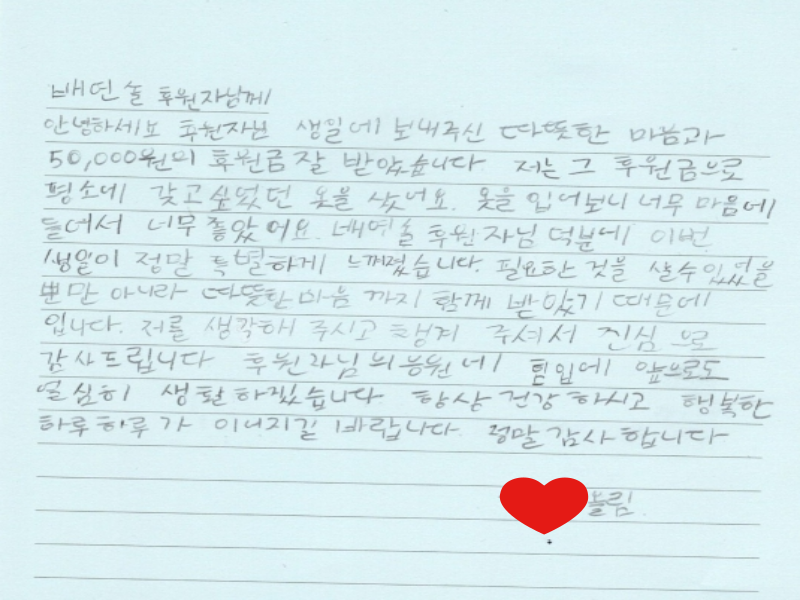 배연솔 후원자님께
안녕하세요 후원자님 생일에 보내주신 따뜻한 마음과
50,000원의 후원금 잘 받았습니다 저는 그 후원금으로
평소에 갖고싶었던 옷을 샀어요. 옷을 입어보니 너무 마음에
들어서 너무 좋았어요. 배연솔 후원자님 덕분에 이번
생일이 정말 특별하게 느껴졌습니다. 필요한 것을 살수있었을
뿐만 아니라 따뜻한 마음 까지 함께 받았기 때문에
입니다. 저를 생각해 주시고 챙겨 주셔서 진심 으로
감사드립니다 후원자님의 응원에 힘입에 앞으로도
열심히 생활하겠습니다 항상 건강 하시고 행복한
하루하루가 이어지길 바랍니다. 정말감사합니다
올림.